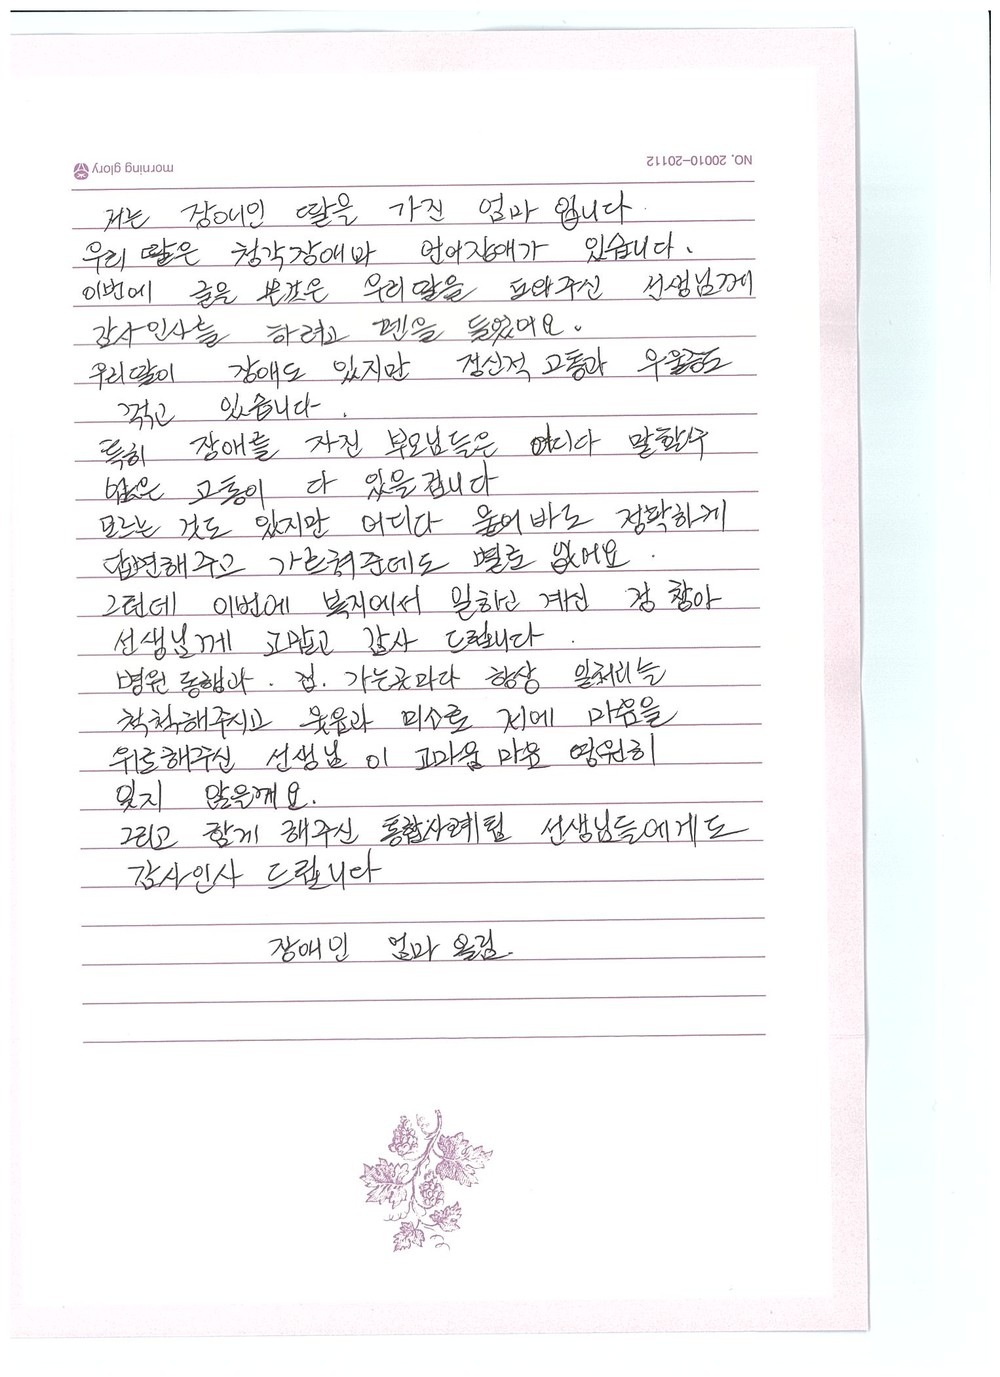 morning glory
NO. 20010-20112
저는 장애인 딸을 가진 엄마 입니다.
우리 딸은 청각장애와 언어장애가 있습니다.
이번에 글을 쓴것은 우리딸을 도와주신 선생님께
감사인사를 하려고 펜을 들었어요.
우리딸이 장애도 있지만 정신적 고통과 우울증도
겪고 있습니다.
특히 장애를 가진 부모님들은 어디다 말할수
없은 고통이 다 있을겁니다
모르는 것도 있지만 어디다 물어바도 정확하게
답변해주고 가르쳐준데도 별로 없어요.
그런데 이번에 복지에서 일하신 계신 정
선생님께 고맙고 감사 드립니다.
병원 동행과. 집. 가는곳마다 항상 일처리늘
척척해주시고 웃음과 미소로 저에 마음을
위로해주신 선생님 이 고마운 마음 영원히
잊지 않을께요.
그리고 함께 해주신 통합사례팀 선생님들에게도
감사인사 드립니다
장애인 엄마 올림.